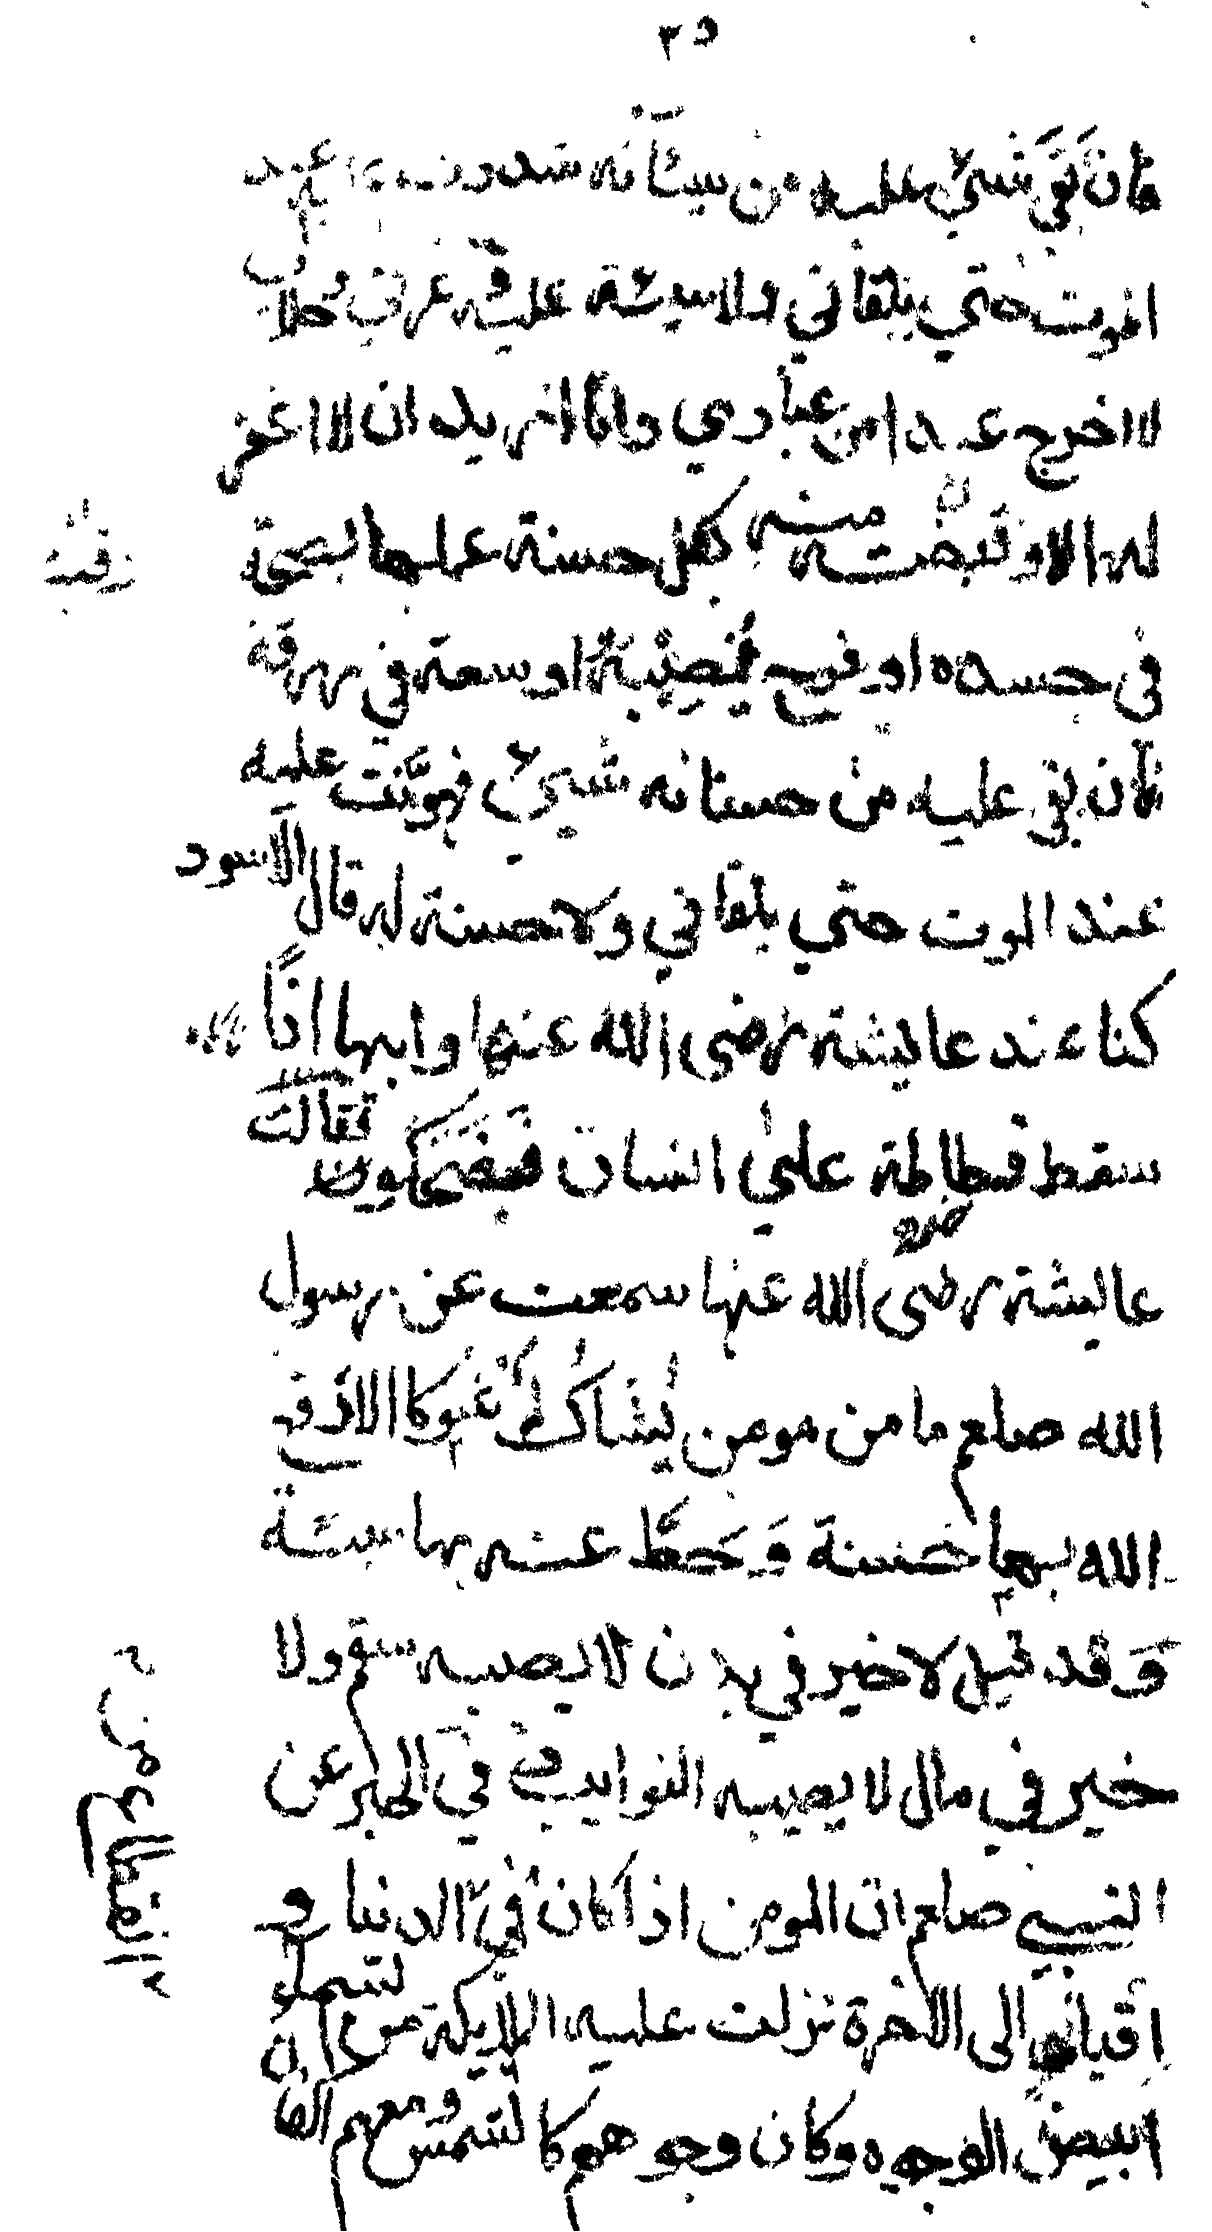 ٣٥
فان بقي شيء عليه من سيئاته شددت عليه عند
الموت حتي يلقاني ولا سيئة عليه وعزتي وجلالي
لا اخرج عبدا من عبادي وانا اريد ان لا اغفر
له الا وقبضت منه بكل حسنة عملها بصحة
في جسده او فرح يصيبه او سعة في رزقه
فان بقي عليه من حسناته شيء فهونت عليه
عند الموت حتي يلقاني ولا حسنة له قال الاسود
كنا عند عايشة رضى الله عنها وابيها اذا
سقط فسطاطة علي انسان فيضحكون فقالت
عايشة رضى الله عنها سمعت عن رسول
الله صلعم ما من مومن يشاك شوكا الا رفع
الله بها حسنة وحط عنه بها سيئة
وقد قيل لا خير في بدن لا يصيبه سقم ولا
خير في مال لا يصيبه النوايب في الخبر عن
النبي صلعم ان المومن اذا كان في الدنيا و
اقبال الى الآخرة نزلت عليه الملايكة من السماء
ابيض الوجوه وكان وجوههم كالشمس ومعهم